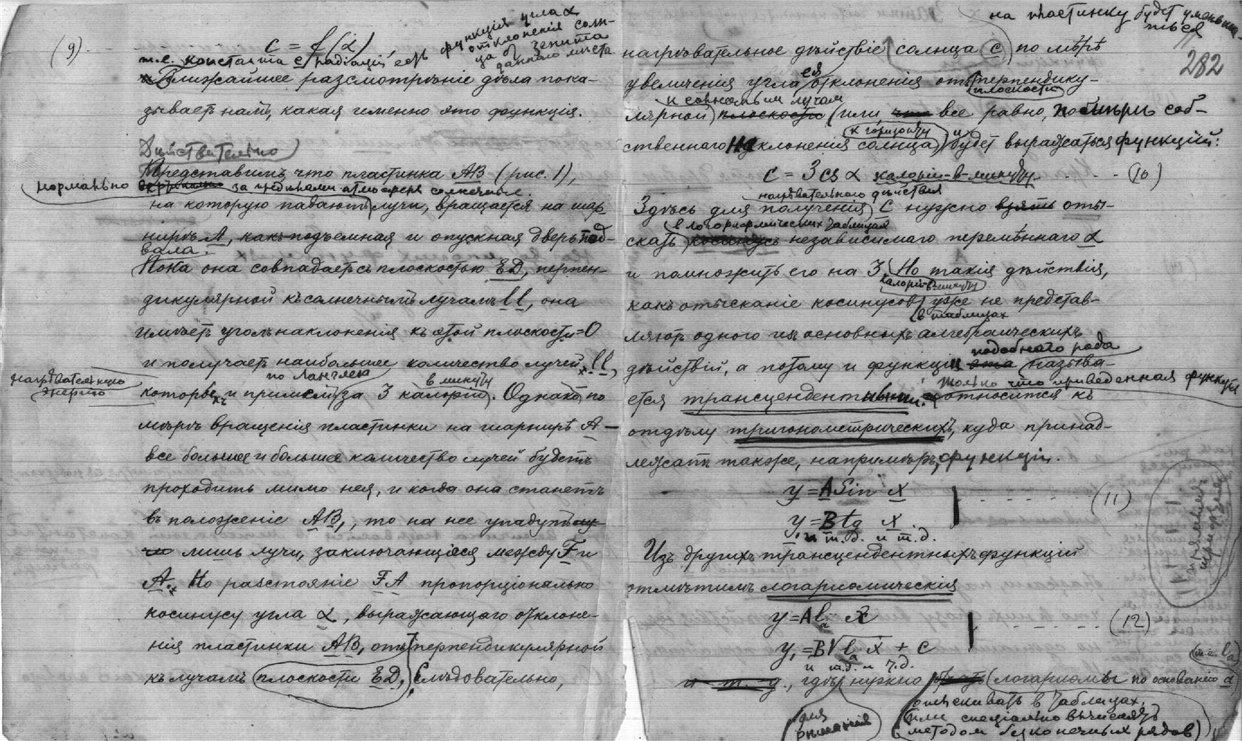 (9)
c = f(α)
т.е. константа c радіаціи есть функція угла α
отклоненія солн-
ца от зенита
даннаго места
Ближайшее разсмотрѣніе дѣла пока-
зываетъ намъ, какая именно это функція.
Дѣйствительно
Представимъ что пластинка АВ (рис. 1),
нормально за предѣлами атмосферы солнечные
на которую падаютъ лучи, вращается на шар-
нирѣ А, какъ подъемная и опускная дверь под-
вала.
Пока она совпадаетъ съ плоскостью ED, перпен-
дикулярной къ солнечнымъ лучамъ ll, она
имѣетъ уголъ наклоненія къ этой плоскости = 0
и получаетъ наибольшее количество лучей ll,
нагрѣвательную
энергію
по Ланглею
в минуту
которыхъ и примемъ за 3 калоріи. Однако, по
мѣрѣ вращенія пластинки на шарнирѣ А —
все большее и большее количество лучей будетъ
проходить мимо нея, и когда она станетъ
въ положеніе АВ, то на нее упадутъ
лишь лучи, заключающіяся между F и
А. Но разстояніе FA пропорціонально
косинусу угла α, выражающаго отклоне-
нія пластинки АВ, отъ перпендикулярной
къ лучамъ плоскости ED. Слѣдовательно,
на пластинку будет уменьша-
ться
282
нагрѣвательное дѣйствіе солнца c по мѣрѣ
увеличенія угла ея отклоненія отъ перпендику-
плоскости
к солнечным лучам
лярной плоскости (или все равно, по мѣрѣ соб-
к горизонту
ственнаго наклоненія солнца) и будетъ выражаться функціей:
c = 3 cs α калорій в минуту - - (10)
нагрѣвательнаго действия
Здѣсь для полученія c нужно взять оты-
в логарифмических таблицах
скать косинусъ независимаго перемѣннаго α
и помножить его на 3 Но такія дѣйствія,
калоріи в минуту
какъ отысканіе косинусов уже не представ-
в таблицах
ляютъ одного изъ основныхъ алгебраическихъ
подобнаго рода
дѣйствій, а потому и функціи называ-
только что приведенная функція
ется трансцендентными. относится къ
отдѣлу тригонометрическихъ, куда принад-
лежатъ также, напримѣръ, функціи.
y = A Sin x
(11)
y₁ = B tg x
и т.д. и т.д.
Изъ другихъ трансцендентныхъ функцій
отмѣтимъ логариѳмическія
y = A l x
(12)
y₁ = B√l x + c
и т.д. и т.д.
и т. д., гдѣ нужно (логариѳмы по основанію a
для
рѣшенія
отыскивать в таблицах,
или специально вычислять
методом безконечных рядов)